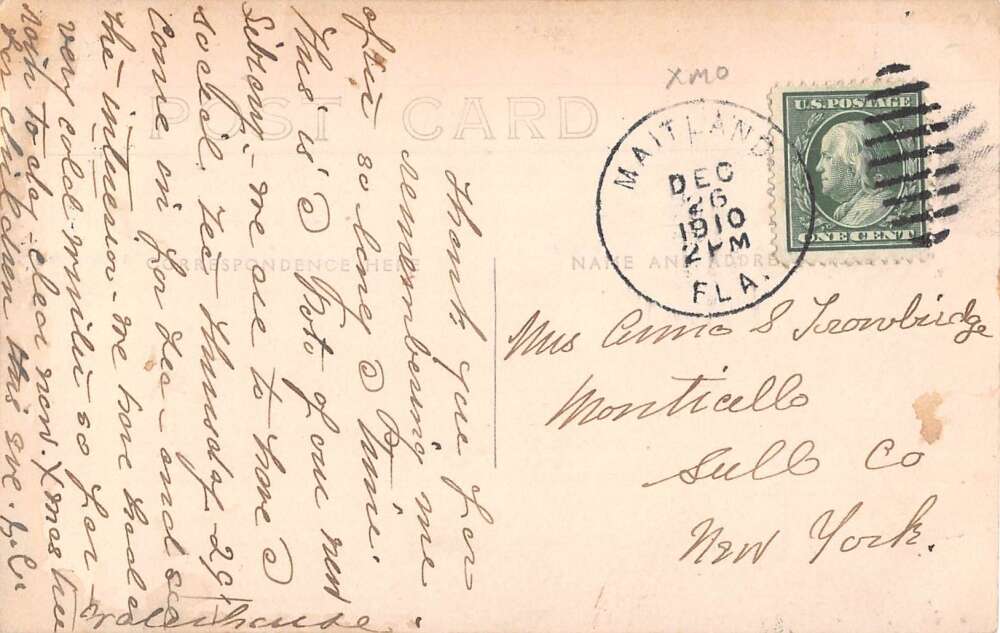 XMO
U.S. POSTAGE
ONE CENT
MAITLAND
DEC
26
1910
2 PM
FLA.
POST CARD
CORRESPONDENCE HERE
NAME AND ADDRESS
Mrs Anna S Trowbridge
Monticello
Sull Co
New York.
Thank you for
remembering me
after so long a time.
This is a Foto of our new
Library - we are to have a
social tea Thursday - 29
come in for tea - and see
the interior - we have had a
very cold winter so far -
rain to day - clear now. Xmas tree
for children this eve.
Waterhouse